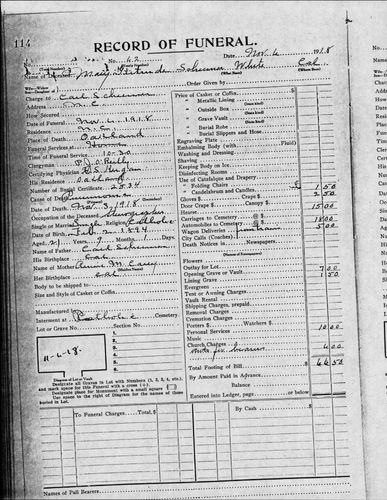 114
RECORD OF FUNERAL.
No. 62 Date, Nov. 6 1918
Mary Gertrude Scheuner White Cal
Charge to Carl Scheuner
Order Given by
Address
How Secured
Date of Funeral Nov. 6, 1918
Residence
Place of Death Oakland
Funeral Services at Home
Time of Funeral Service 10:30
Clergyman
Certifying Physician
His Residence Oakland
Number of Burial Certificate 2534
Cause of Death Pneumonia
Date of Death Nov 3, 1918
Occupation of the Deceased Stenographer
Single or Married Single Religion Catholic
Date of Birth Feb. 2, 1894
Aged, Years, 9 Months, Days
Name of Father Carl Scheuner
His Birthplace Cal
Name of Mother Annie M. Carey
Her Birthplace Cal
Body to be shipped to
Size and Style of Casket or Coffin
Manufactured by
Interment at Catholic Cemetery.
Lot or Grave No. Section No.
11-6-18.
Diagram of Lot or Vault
Designate all Graves in Lot with Numbers (1, 2, 3, 4, etc.,
and mark space for this Funeral with a cross (+).
Designate place for Monument with a small square
Use space to the right of Diagram for the names of those
buried in Lot.
Price of Casket or Coffin
" Metallic Lining
" Outside Box
" Grave Vault
" Burial Robe
" Burial Slippers and Hose
Engraving Plate
Embalming Body (with Fluid)
Washing and Dressing
Shaving
Keeping Body on Ice
Disinfecting Rooms
Use of Catafalque and Drapery
" Folding Chairs 1 50
" Candelabrum and Candles 2 50
Gloves
Door Crape Canopy 15 00
Hearse
Carriages to Cemetery
Automobiles to Cemetery 18 00
Wagon Deliveries from train 5 00
City Calls (Coaches)
Death Notices in Newspapers
Flowers
Outlay for Lot
Opening Grave or Vault 7 00
Lining Grave 1 50
Evergreen
Tent or Awning Charges
Vault Rental
Shipping Charges, prepaid
Removal Charges
Cremation Charges
Porters Watchers
Personal Services 10 00
Music
Church Charges
auto for bearers 6 00
Total Footing of Bill 66 50
By Amount Paid in Advance
Balance
Entered into Ledger, page or below
To Funeral Charges Total,$
By Cash $
Names of Pall Bearers